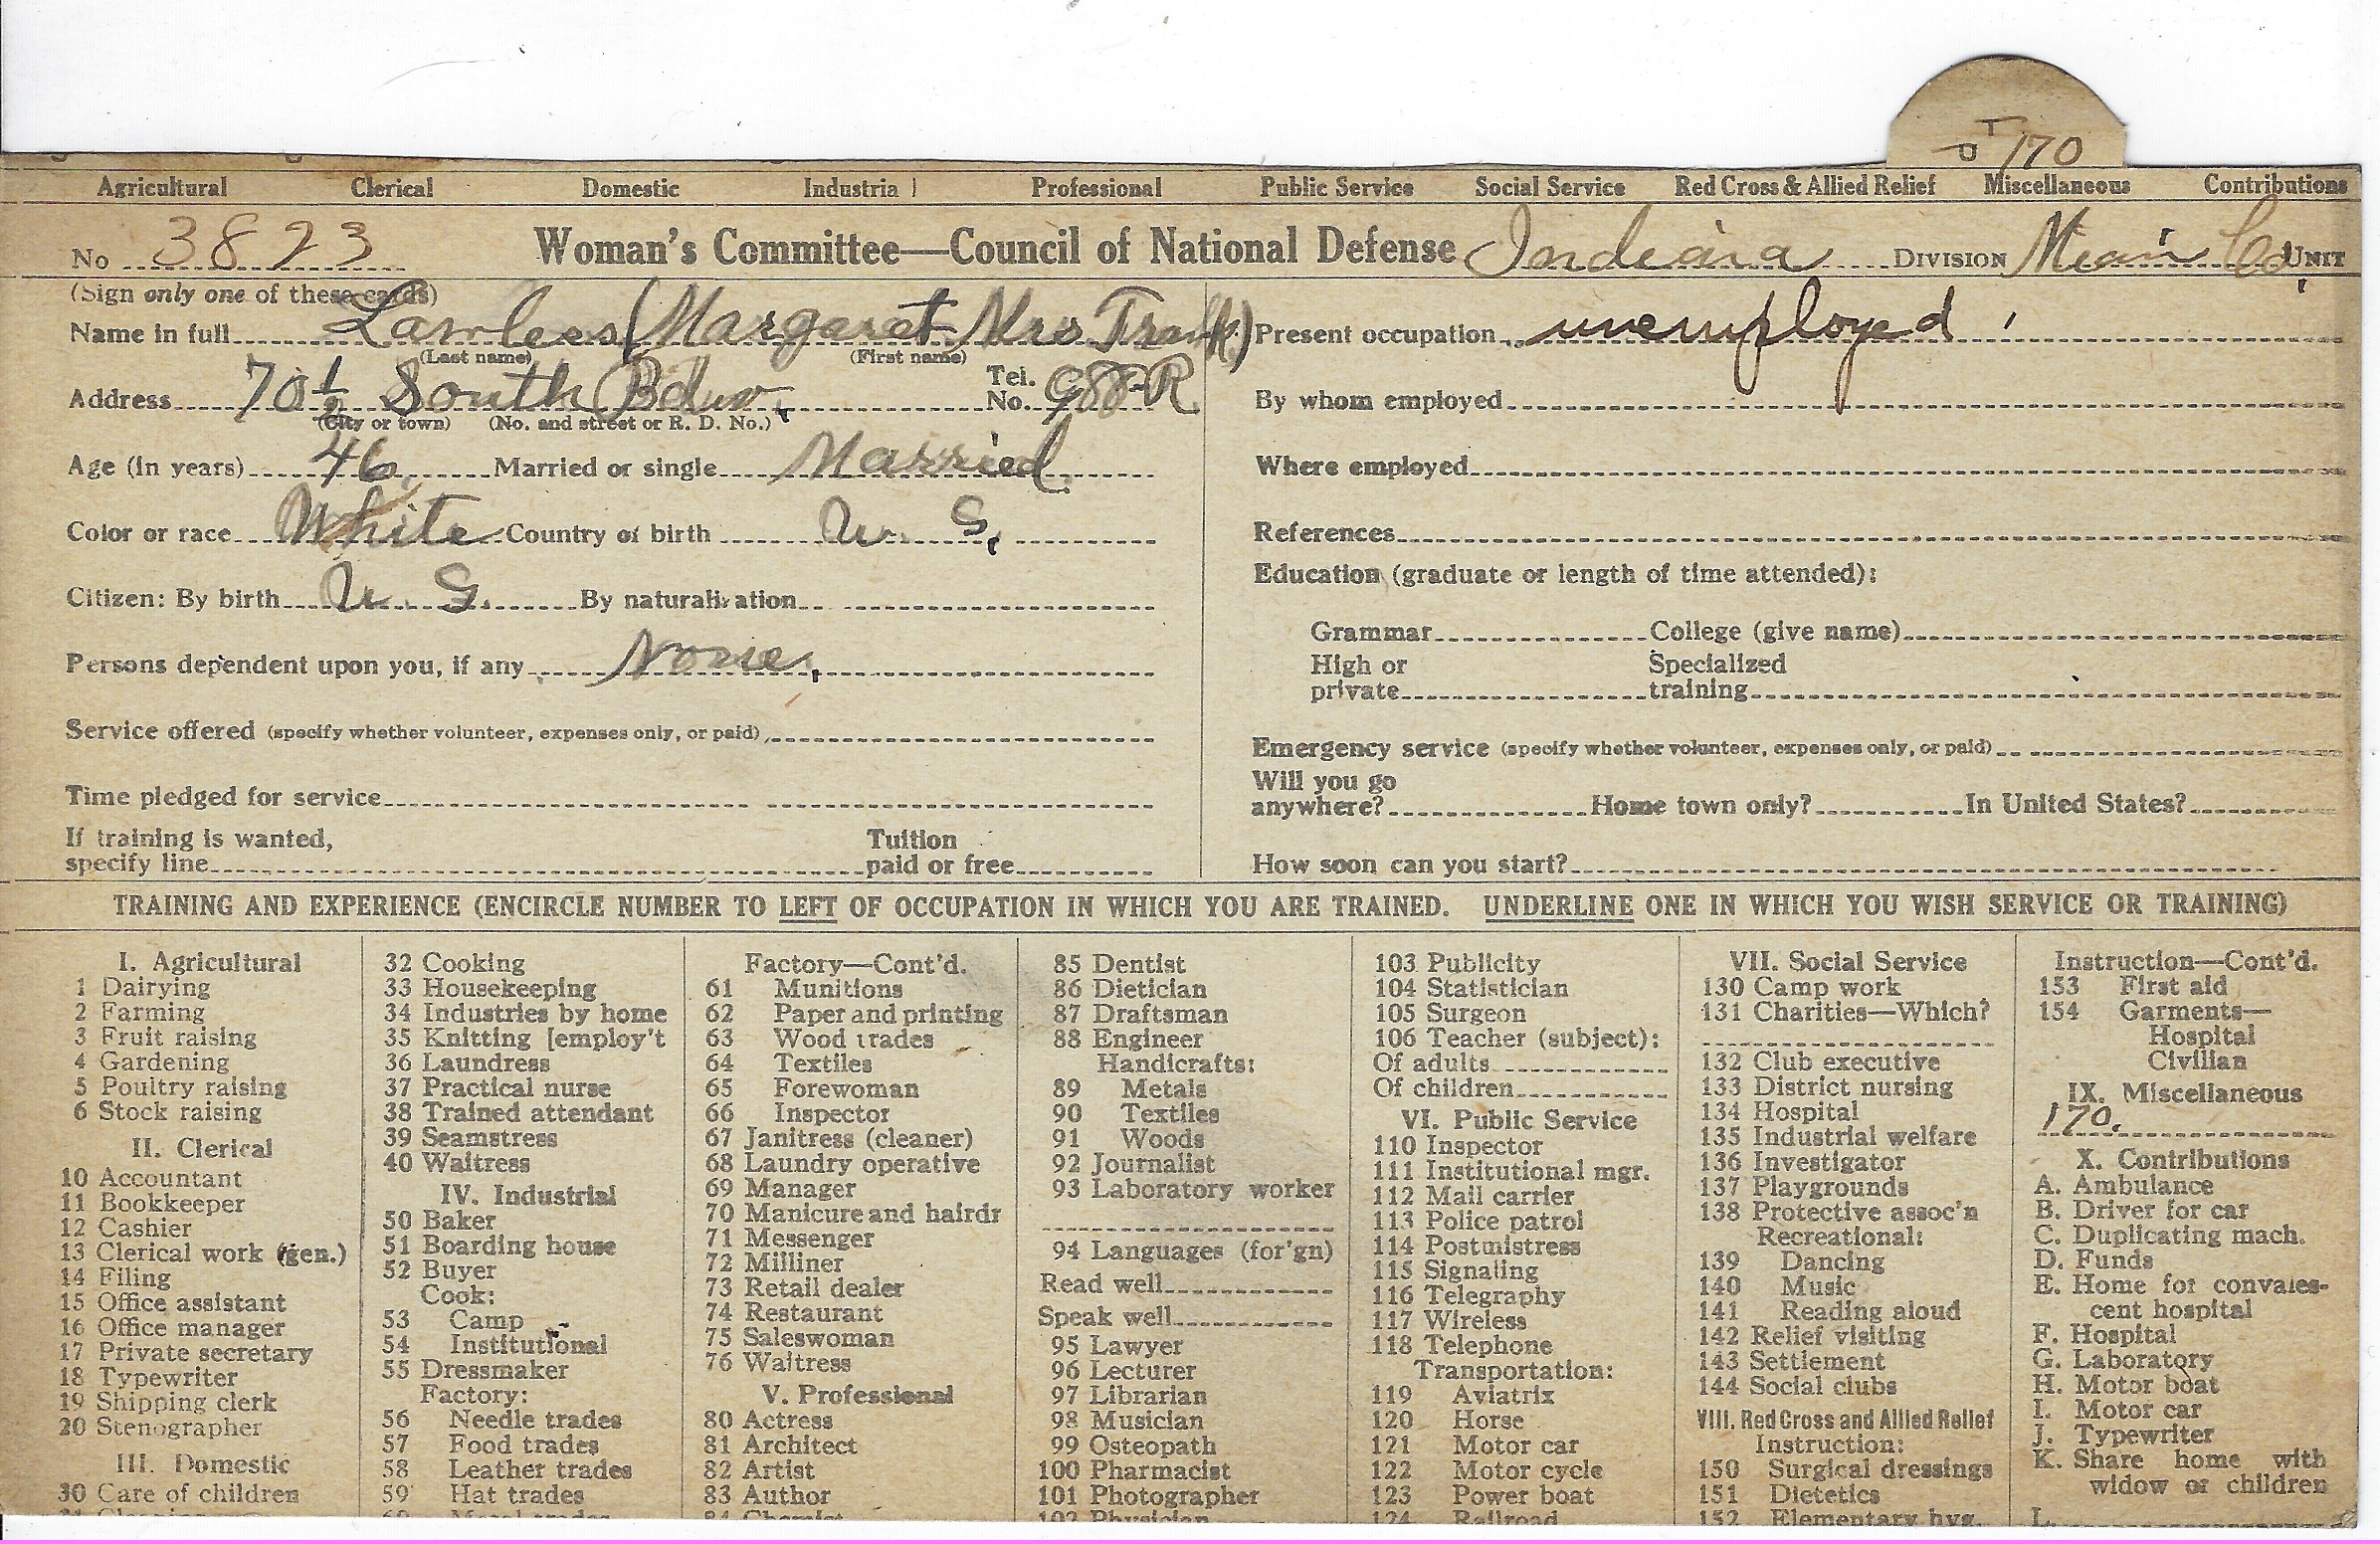 170
Agricultural Clerical Domestic Industrial Professional Public Service Social Service Red Cross & Allied Relief Miscellaneous Contributions
No 3823 Woman's Committee—Council of National Defense Indiana DIVISION Miami Co. UNIT
(Sign only one of these cards)
Name in full Lawless (Margaret Mrs Frank)
(Last name) (First name)
Address 70½ South Bdw. Tel. No. 988-R
(City or town) (No. and street or R. D. No.)
Age (in years) 46 Married or single Married
Color or race White Country of birth U. S.
Citizen: By birth U. S. By naturalization
Persons dependent upon you, if any None.
Service offered (specify whether volunteer, expenses only, or paid)
Time pledged for service
If training is wanted,
specify line Tuition paid or free
Present occupation unemployed
By whom employed
Where employed
References
Education (graduate or length of time attended):
Grammar College (give name)
High or private Specialized training
Emergency service (specify whether volunteer, expenses only, or paid)
Will you go
anywhere? Home town only? In United States?
How soon can you start?
TRAINING AND EXPERIENCE (ENCIRCLE NUMBER TO LEFT OF OCCUPATION IN WHICH YOU ARE TRAINED. UNDERLINE ONE IN WHICH YOU WISH SERVICE OR TRAINING)
I. Agricultural
1 Dairying
2 Farming
3 Fruit raising
4 Gardening
5 Poultry raising
6 Stock raising
II. Clerical
10 Accountant
11 Bookkeeper
12 Cashier
13 Clerical work (gen.)
14 Filing
15 Office assistant
16 Office manager
17 Private secretary
18 Typewriter
19 Shipping clerk
20 Stenographer
III. Domestic
30 Care of children
31 Cleaning
32 Cooking
33 Housekeeping
34 Industries by home
35 Knitting [employ't
36 Laundress
37 Practical nurse
38 Trained attendant
39 Seamstress
40 Waitress
IV. Industrial
50 Baker
51 Boarding house
52 Buyer
Cook:
53 Camp
54 Institutional
55 Dressmaker
Factory:
56 Needle trades
57 Food trades
58 Leather trades
59 Hat trades
60 Metal trades
Factory—Cont'd.
61 Munitions
62 Paper and printing
63 Wood trades
64 Textiles
65 Forewoman
66 Inspector
67 Janitress (cleaner)
68 Laundry operative
69 Manager
70 Manicure and hairdr
71 Messenger
72 Milliner
73 Retail dealer
74 Restaurant
75 Saleswoman
76 Waitress
V. Professional
80 Actress
81 Architect
82 Artist
83 Author
84 Chemist
85 Dentist
86 Dietician
87 Draftsman
88 Engineer
Handicrafts:
89 Metals
90 Textiles
91 Woods
92 Journalist
93 Laboratory worker
94 Languages (for'gn)
Read well
Speak well
95 Lawyer
96 Lecturer
97 Librarian
98 Musician
99 Osteopath
100 Pharmacist
101 Photographer
102 Physician
103 Publicity
104 Statistician
105 Surgeon
106 Teacher (subject):
Of adults
Of children
VI. Public Service
110 Inspector
111 Institutional mgr.
112 Mail carrier
113 Police patrol
114 Postmistress
115 Signaling
116 Telegraphy
117 Wireless
118 Telephone
Transportation:
119 Aviatrix
120 Horse
121 Motor car
122 Motor cycle
123 Power boat
124 Railroad
VII. Social Service
130 Camp work
131 Charities—Which?
132 Club executive
133 District nursing
134 Hospital
135 Industrial welfare
136 Investigator
137 Playgrounds
138 Protective assoc'n
Recreational:
139 Dancing
140 Music
141 Reading aloud
142 Relief visiting
143 Settlement
144 Social clubs
VIII. Red Cross and Allied Relief
Instruction:
150 Surgical dressings
151 Dietetics
152 Elementary hyg.
Instruction—Cont'd.
153 First aid
154 Garments—
Hospital
Civilian
IX. Miscellaneous
170.
X. Contributions
A. Ambulance
B. Driver for car
C. Duplicating mach.
D. Funds
E. Home for convales-
cent hospital
F. Hospital
G. Laboratory
H. Motor boat
I. Motor car
J. Typewriter
K. Share home with
widow or children
L.